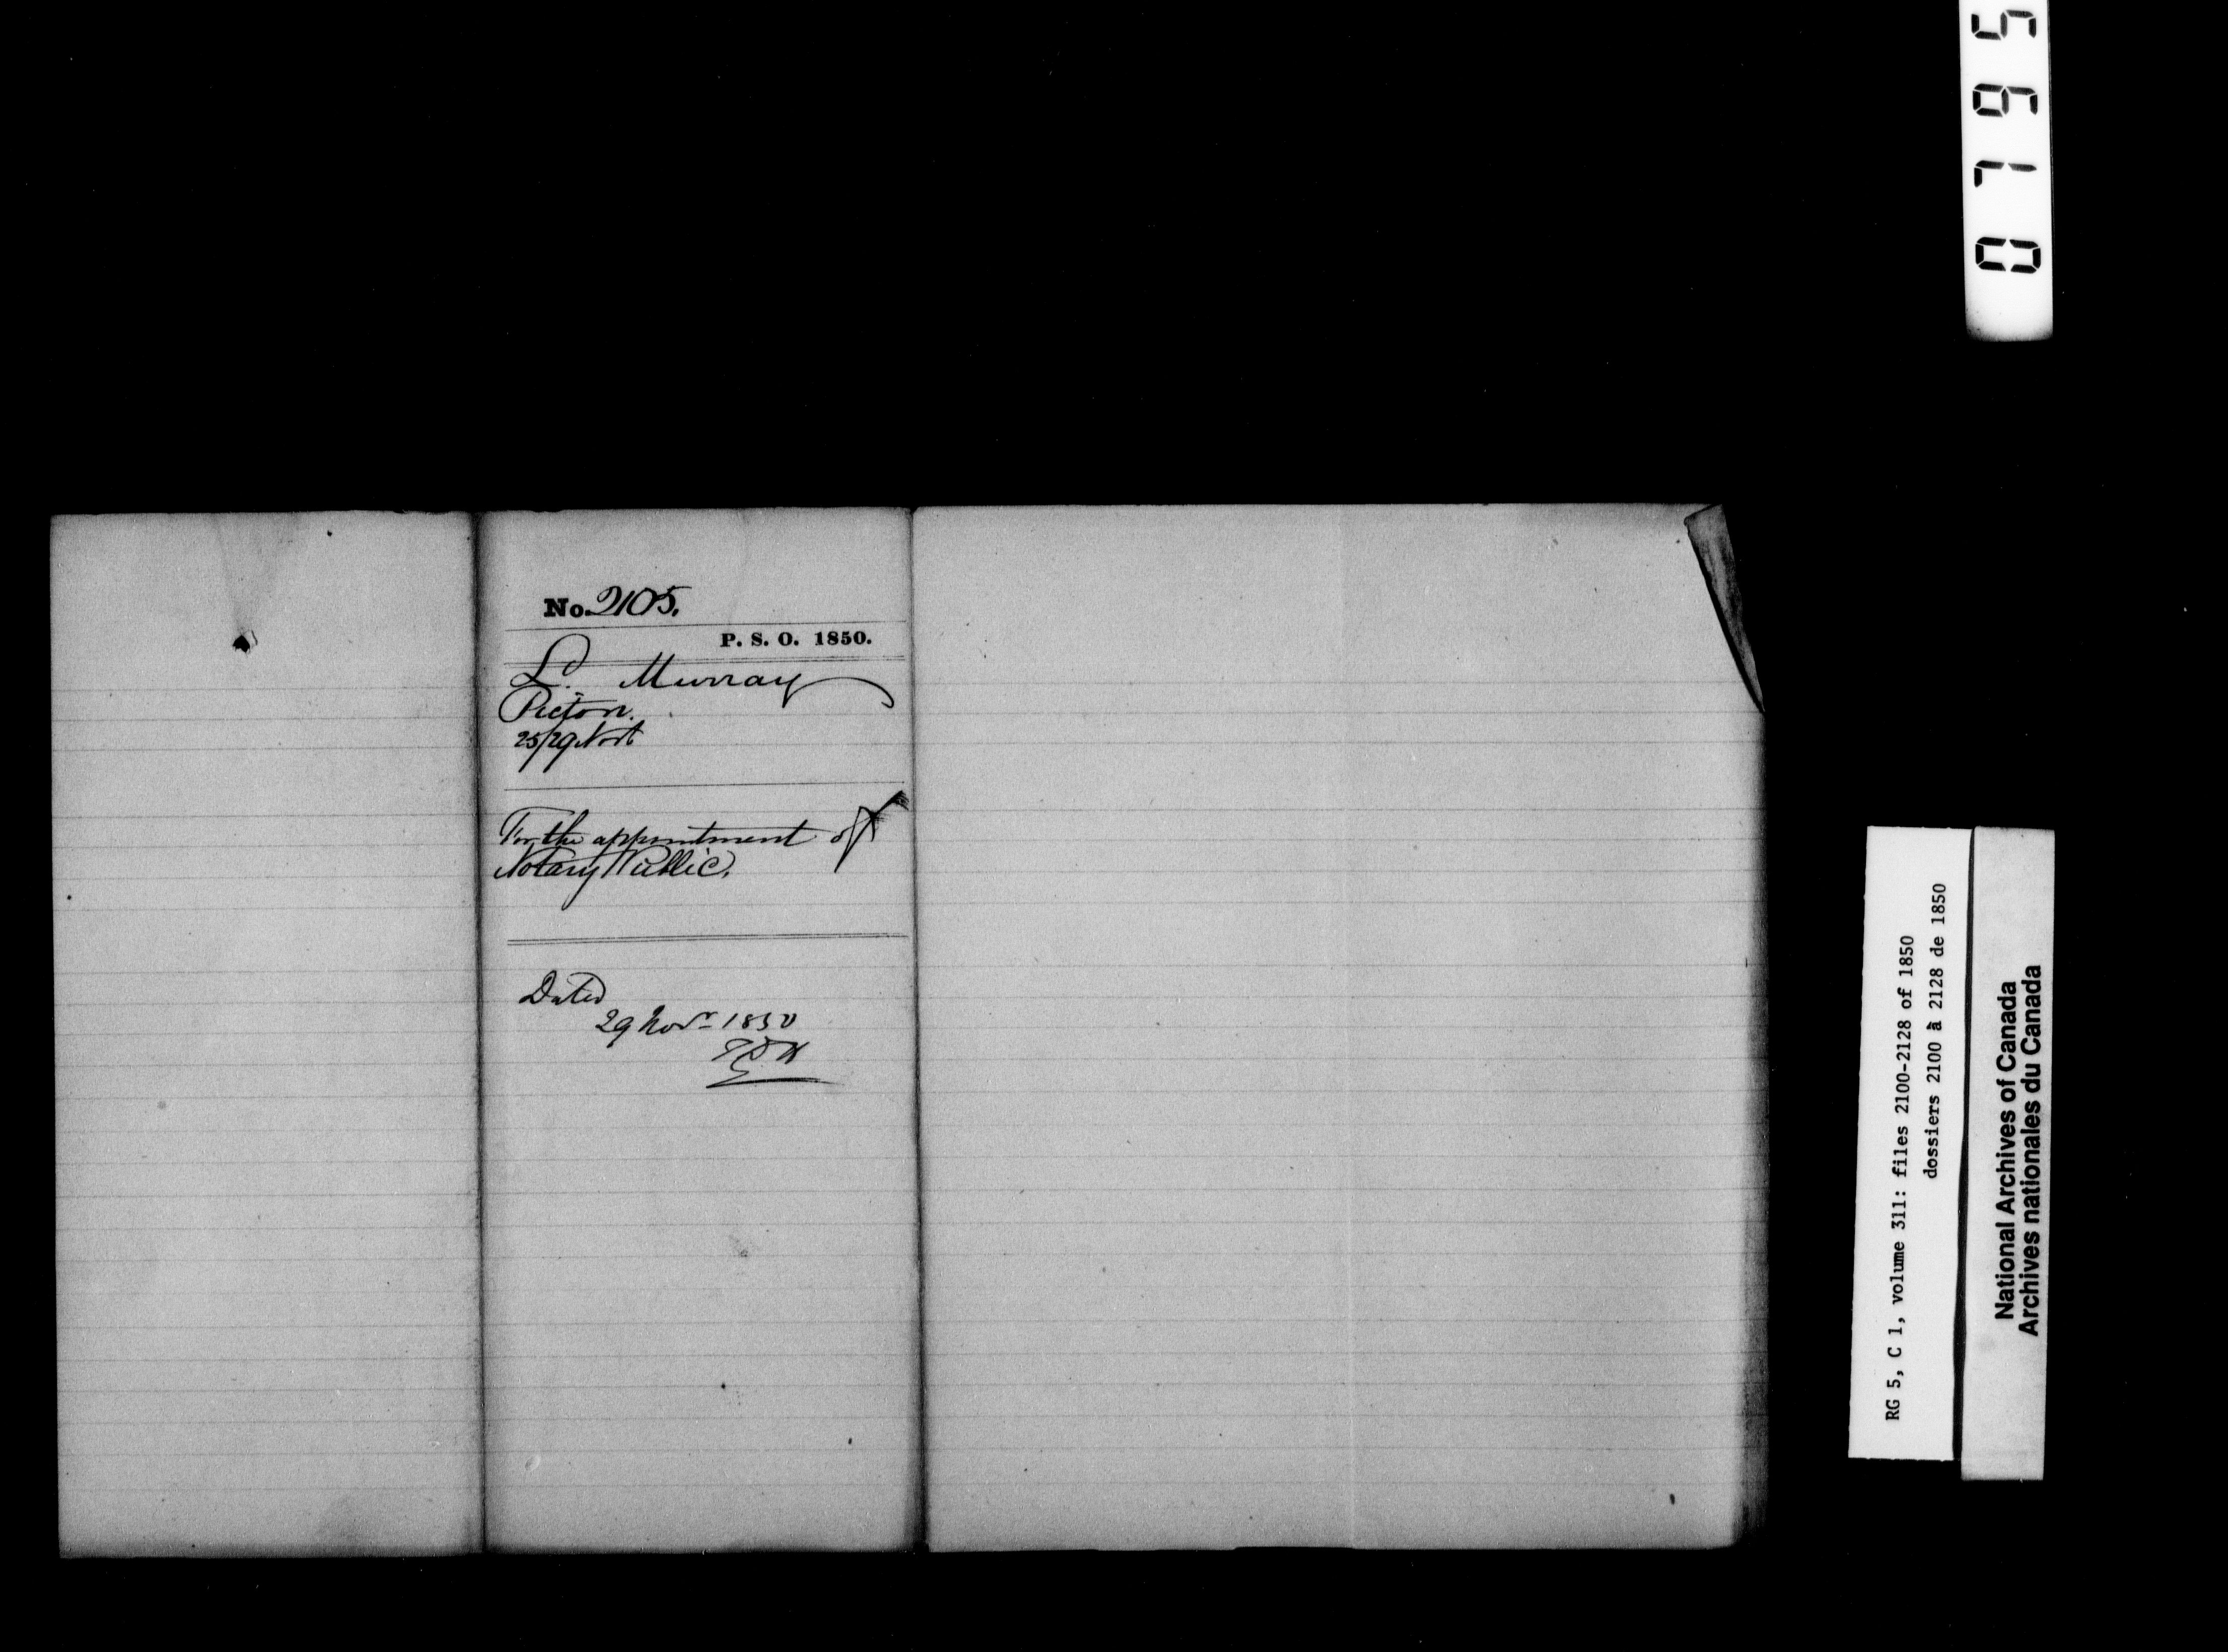 No. 2105.
P. S. O. 1850.
L. Murray
Picton.
25/29 Nov
For the appointment of
Notary Public.
Dated
29 Novr 1850
RG 5, C 1, volume 311: files 2100-2128 of 1850
dossiers 2100 à 2128 de 1850
National Archives of Canada
Archives nationales du Canada
0795